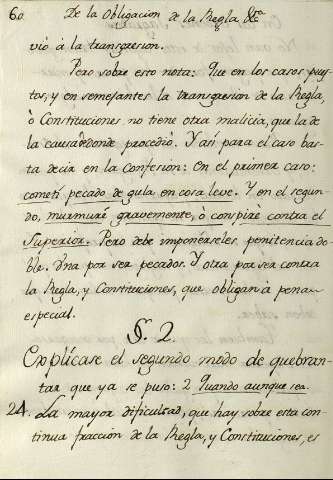 60 De la Obligacion de la Regla, &ra
vió á la transgresion.
Pero sobre esto nota: Que en los casos pues-
tos, y en semejantes la transgresion de la Regla,
ò Constituciones no tiene otra malicia, que la de
la causa de donde procedió. Y así para el caso bas-
ta decir en la Confesion: En el primer caso:
cometí pecado de gula en cosa leve. Y en el segun-
do, murmuré gravemente, ò conspiré contra el
Superior. Pero debe imponérseles penitencia do-
ble. Una por ser pecados. Y otra por ser contra
la Regla, y Constituciones, que obligan à pena
especial.
§. 2.
Explícase el segundo modo de quebran-
tar que ya se puso: 2 Quando aunque sea.
24. La mayor dificultad, que hay sobre esta con-
tinua fraccion de la Regla, y Constituciones, es